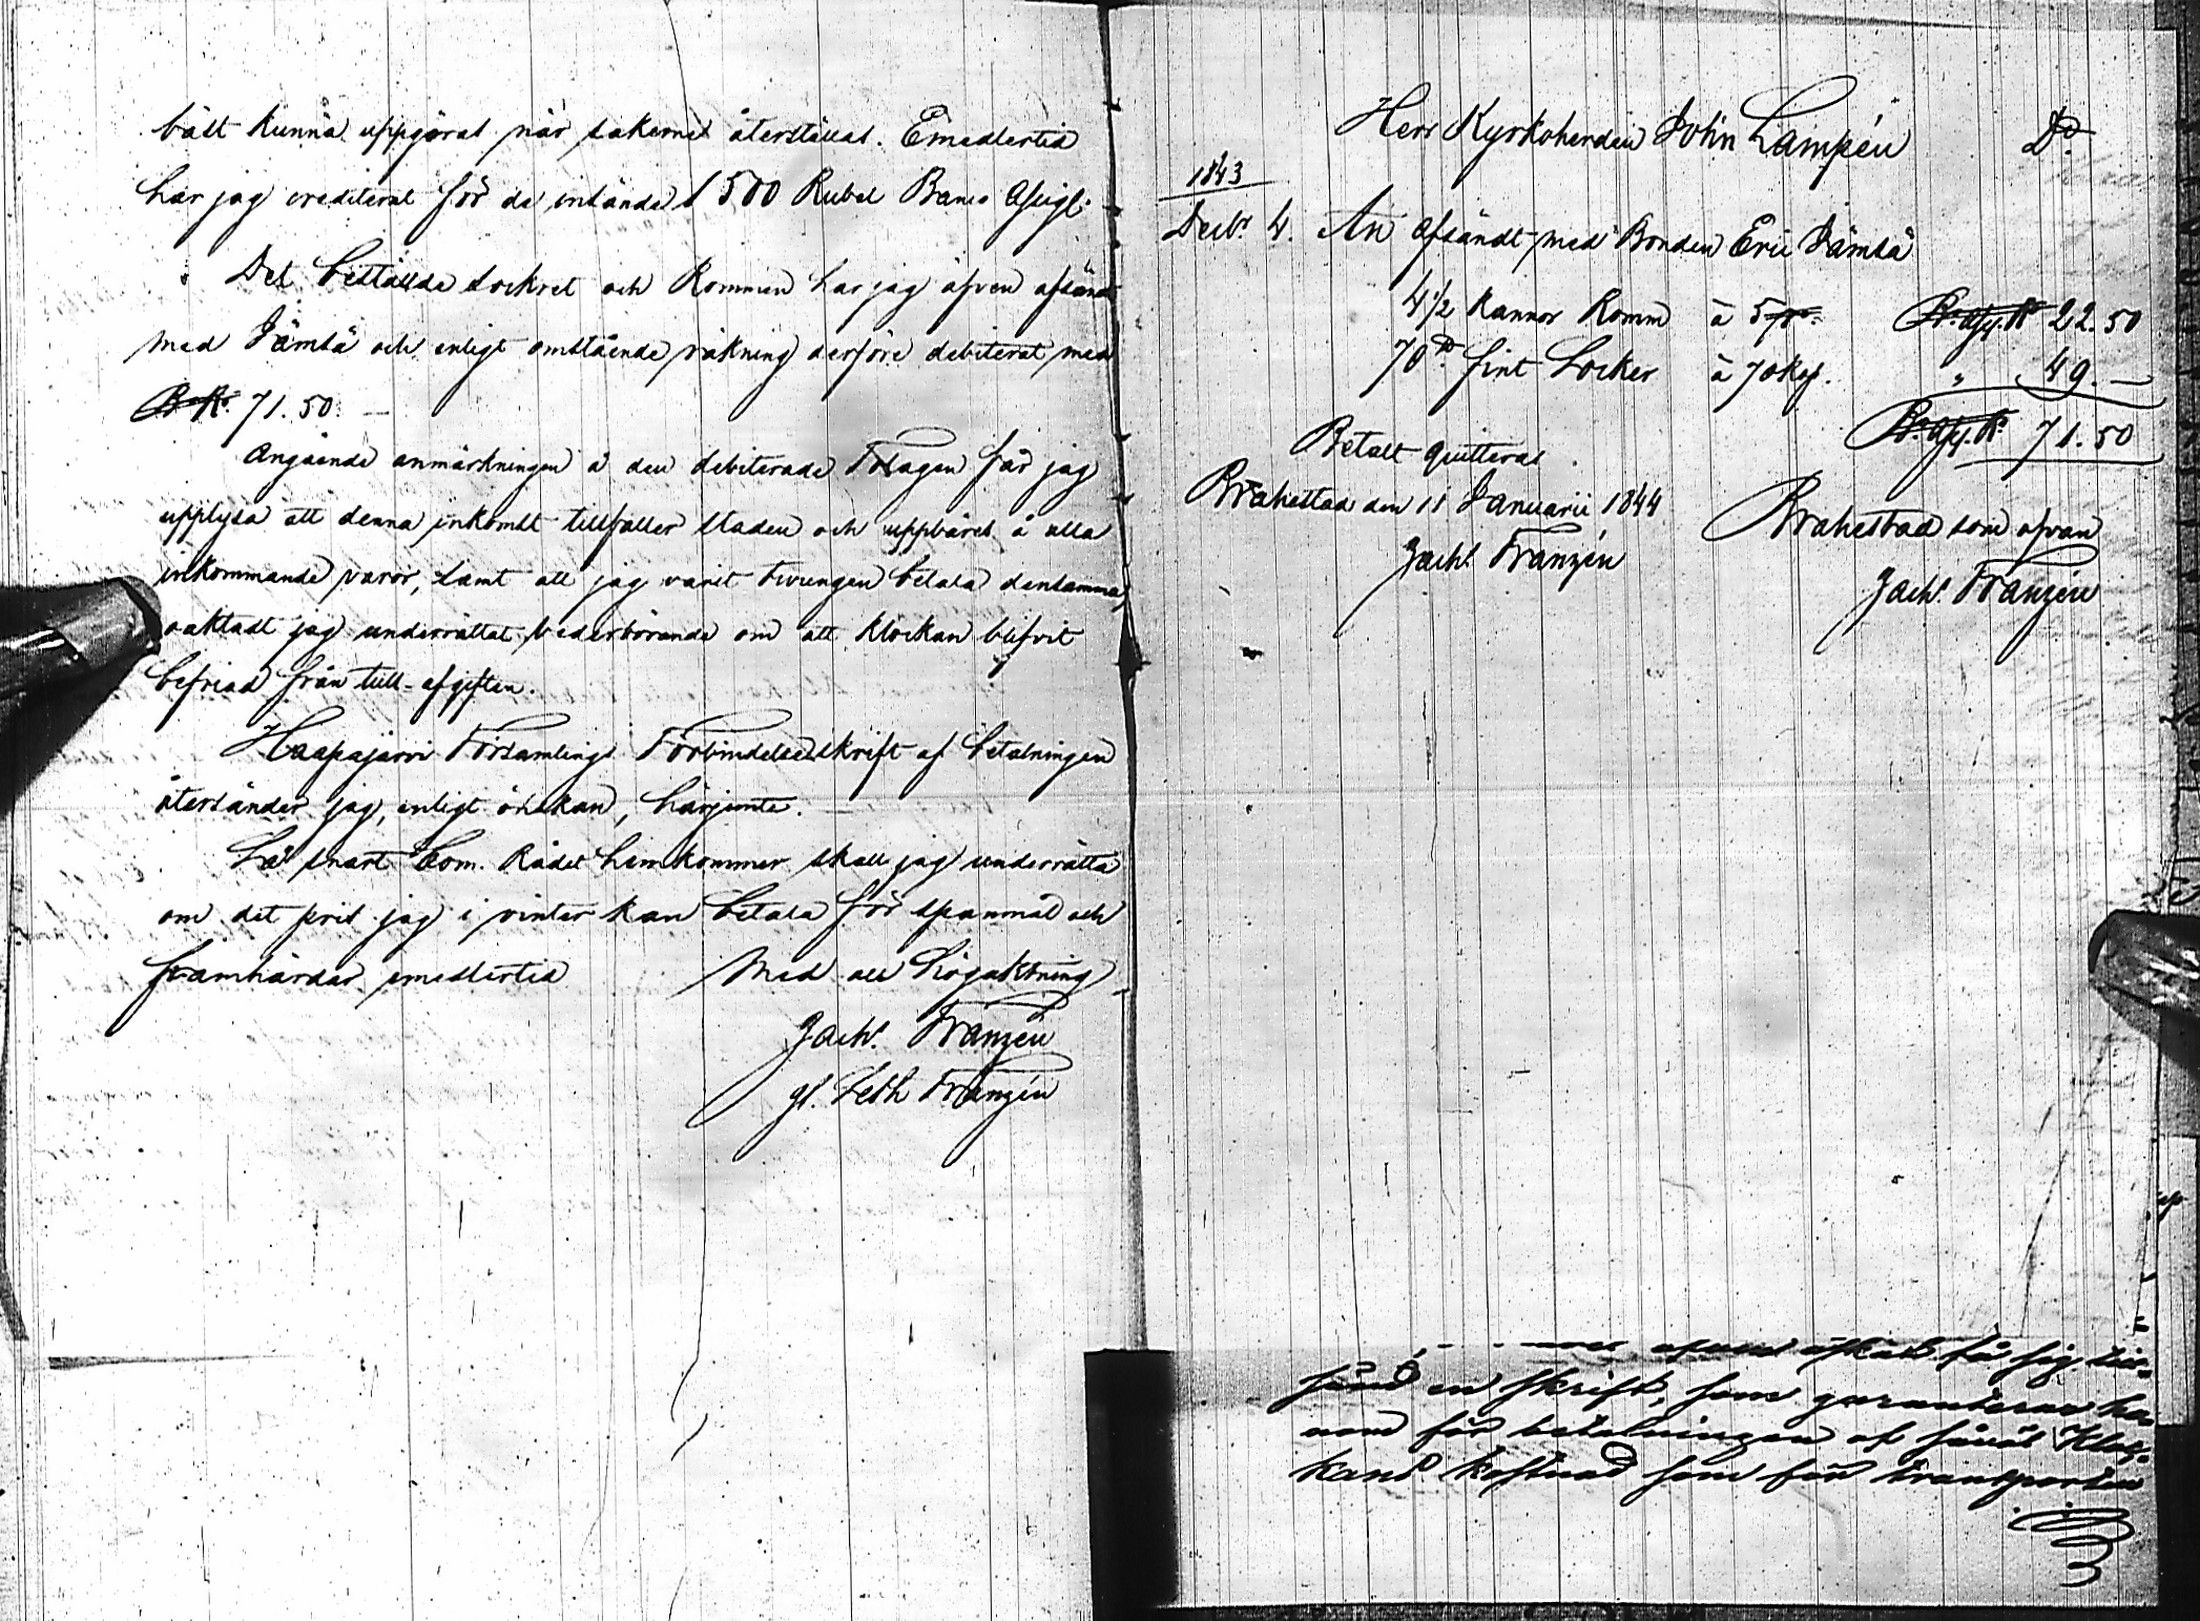 bäst kunna uppgöras när sakerna återställas. Emedlertid
har jag crediterat för de insände 1500 Rubel Banco Assign.
Det beställda Sockret och Rommen har jag äfven afsändt
med Jämsä och enligt omstående räkning derföre debiterat med
B:R: 71.50. —
Angående anmärkningen å den debiterade Tolagen får jag
upplysa att denna inkomst tillfaller staden och uppbäres å alla
inkommande varor, samt att jag varit tvungen betala densamma,
oaktadt jag underrättat vederbörande om att klockan blifvit
befriad från tull-afgiften.
Haapajarvi Församlings Förbindelseskrift af betalningen
återsänder jag, enligt önskan, härjemte.
Så snart Com. Rådet hemkommer skall jag underrätta
om det pris jag i vinter kan betala för spanmål och
framhärdar emedlertid Med all Högaktning
Zachs. Franzén
gl. Seth Franzén
Herr Kyrkoherden John Lampén Do.
1843
Decbr. 4. An afsändt med Bonden Eric Jämsä
4 1/2 kannor Romm à 5 Bo. Assg. Ro 22.50
70 ℔ fint Socker à 70 Kop. " 49.—
Bo. Assg. Ro 71.50
Betalt quitteras
Brahestad den 11 Januarii 1844
Zachs. Franzén
Brahestad som ofvan
Zachs. Franzén
äfven åskat få sig till-
sänd en skrift, som garanterar ho-
nom för betalningen af såväl Kloc-
kans kostnad som för transporten